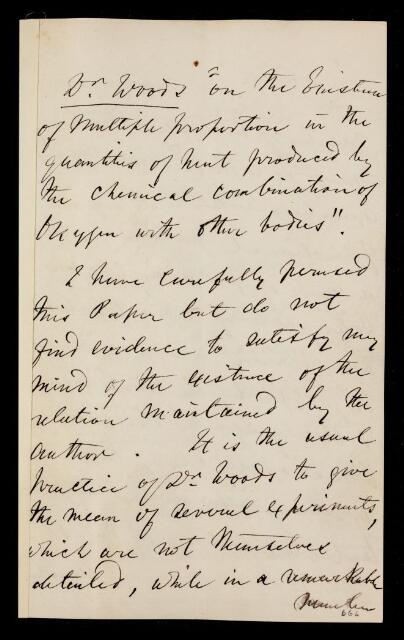 Dr. Woods "on the Existence
of Multiple proportion in the
quantities of heat produced by
the chemical combination of
Oxygen with other bodies".
I have carefully perused
this Paper but do not
find evidence to satisfy my
mind of the existence of the
relation maintained by the
author. It is the usual
practice of Dr. Woods to give
the mean of several experiments,
which are not themselves
detailed, while in a remarkable
666